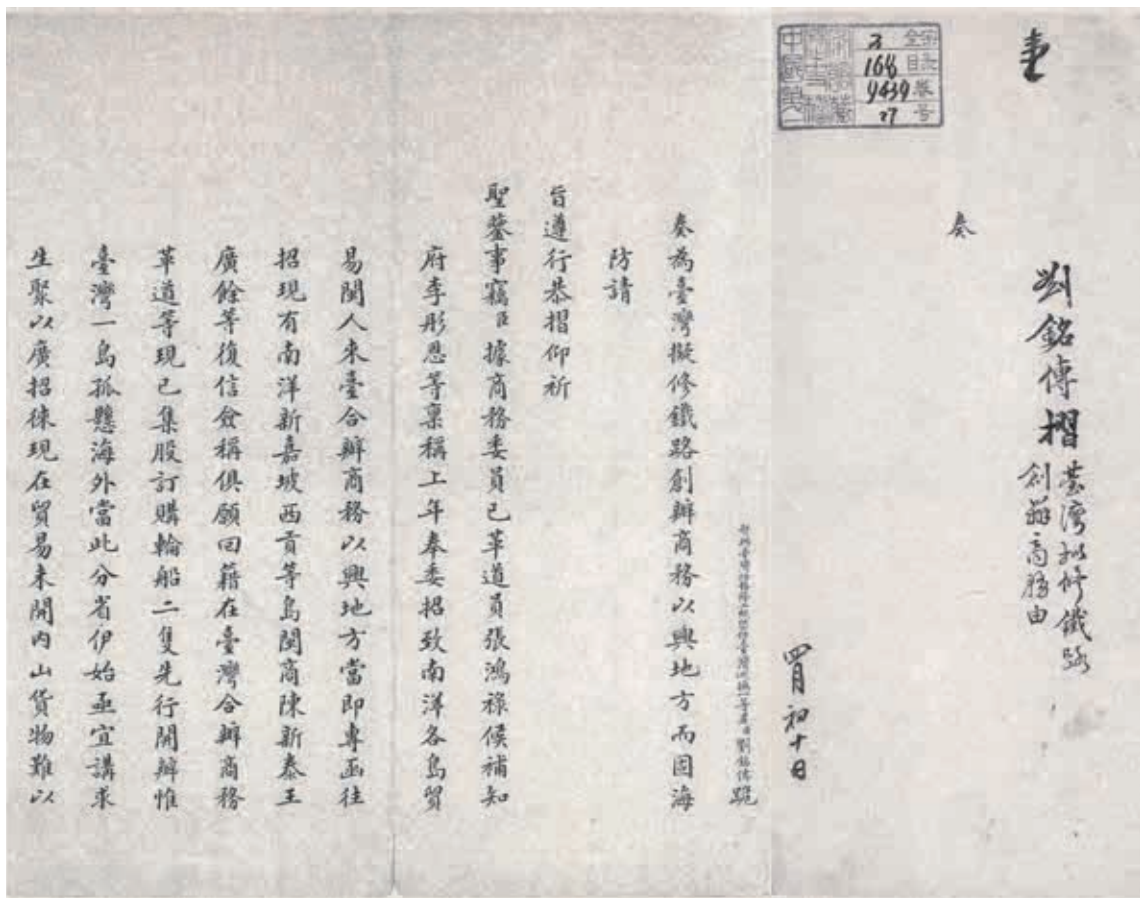 劉銘傳摺
臺灣拟修鐵路
創辦商務由
奏
四月初十日
全宗
目录
卷号
3
168
9439
27
中國第一
劉銘傳跪
奏為臺灣擬修鐵路創辦商務以興地方而固海
防請
旨遵行恭摺仰祈
聖鑒事竊臣據商務委員已革道員張鴻祿候補知
府李彤恩等稟稱上年奉委招致南洋各島貿
易閩人來臺合辦商務以興地方當即專函往
招現有南洋新嘉坡西貢等島閩商陳新泰王
廣餘等復信僉稱俱願回籍在臺灣合辦商務
革道等現已集股訂購輪船二隻先行開辦惟
臺灣一島孤懸海外當此分省伊始亟宜講求
生聚以廣招徠現在貿易未開內山貨物難以